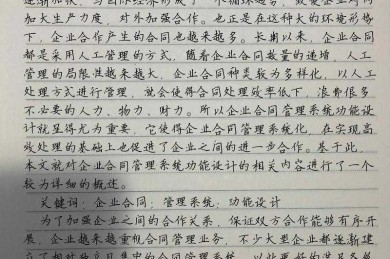 加大生产力度，对外加强合作。也正是在这种大的环境形势
下，企业合作产生的合同也越来越多。长期以来，企业合同
都是采用人工管理的方式，随着企业合同数量的递增，人工
管理的局限性越来越大，企业合同种类较为多样化，以人工
处理方式进行管理，就会使得合同处理效率低下，浪都很多
不必要的人力、物力、财力。所以企业合同管理系统功能设
计就显得尤为重要，它使得企业合同管理系统化，在实现高
效处理的基础上也促进了企业之间的进一步合作。基于此，
本文就对企业合同管理系统功能设计的相关内容进行了一个
较为详细的概述。
关键词：企业合同；管理系统；功能设计
为了加强企业之间的合作关系，保证双方合作能够有序开
展，企业越来越重视合同管理业务，不少大型企业都逐渐建